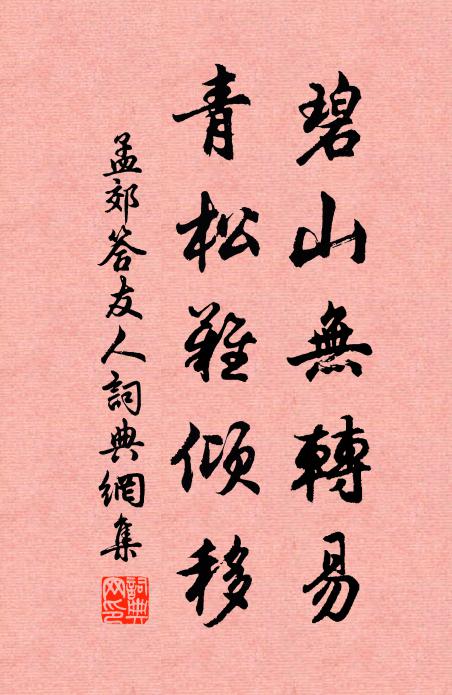 碧山無轉易
青松難傾移
孟郊答友人詞典網集
詞典
网印